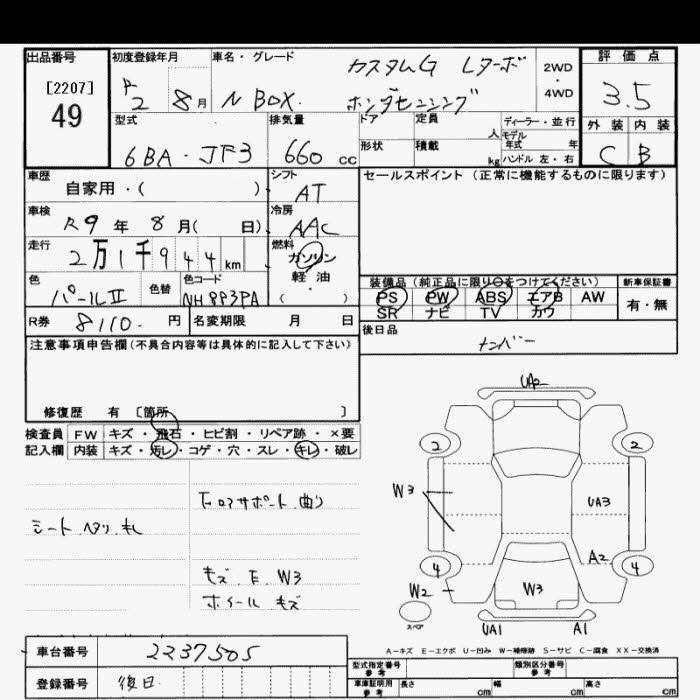 出品番号
[2207]
49
初度登録年月
R2 8月
車名・グレード
カスタムG Lターボ
N BOX. ホンダセンシング
2WD
・
4WD
評価点
3.5
外装 内装
C B
型式
6BA-JF3
排気量
660 cc
ドア
形状
定員 人
積載 kg
ディーラー・並行
モデル年式 年
ハンドル 左・右
車歴
自家用・( )
シフト
AT
車検
R9年 8月( 日)
冷房
AAC
走行
2万1千944km
燃料
ガソリン
軽油
( ・ )
色
パールⅡ
色替
色コード
NH883PA
R券 8110. 円
名変期限 月 日
セールスポイント(正常に機能するものに限ります)
装備品(純正品に限り○をつけてください)
PS PW ABS エアB AW
SR ナビ TV カワ
新車保証書
有・無
後日品
ナンバー
注意事項申告欄(不具合内容等は具体的に記入して下さい)
修復歴 有 〔箇所 〕
検査員記入欄
FW キズ・飛石・ヒビ割・リペア跡・×要
内装 キズ・汚レ・コゲ・穴・スレ・キレ・破レ
下ロアサポート 曲り
シート ヘタリ キレ
キズ E W3
ホイール キズ
UA2
2 2
W3
UA3
A2
4 4
W2
W3
スペア
UA1 A1
A-キズ E-エクボ U-凹み W-補修跡 S-サビ C-腐食 XX-交換済
車台番号 2237505
登録番号 後日
型式指定番号 参考
類別区分番号 参考
車庫証明用 参考 長さ cm 幅 cm 高さ cm